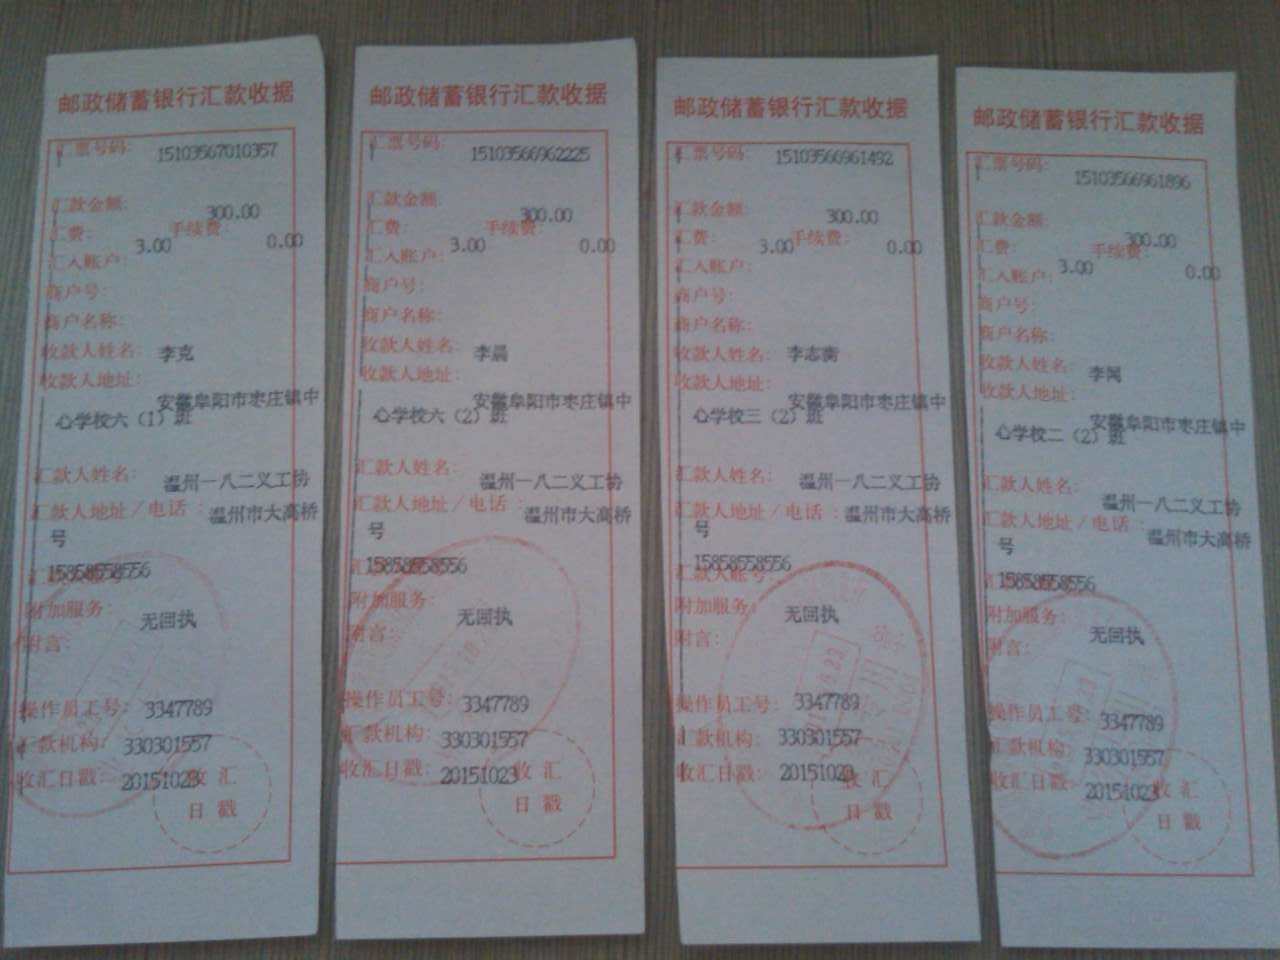 邮政储蓄银行汇款收据
汇票号码: 15103567010357
汇款金额: 300.00
汇费: 3.00 手续费: 0.00
汇入账户:
商户号:
商户名称:
收款人姓名: 李克
收款人地址: 安徽阜阳市枣庄镇中
心学校六（1）班
汇款人姓名: 温州一八二义工协
汇款人地址/电话: 温州市大高桥
号
15858558556
附加服务: 无回执
附言:
操作员工号: 3347789
汇款机构: 330301557
收汇日戳: 20151023
收汇
日戳
邮政储蓄银行汇款收据
汇票号码: 15103566962225
汇款金额: 300.00
汇费: 3.00 手续费: 0.00
汇入账户:
商户号:
商户名称:
收款人姓名: 李晨
收款人地址: 安徽阜阳市枣庄镇中
心学校六（2）班
汇款人姓名: 温州一八二义工协
汇款人地址/电话: 温州市大高桥
号
15858558556
附加服务: 无回执
附言:
操作员工号: 3347789
汇款机构: 330301557
收汇日戳: 20151023
收汇
日戳
邮政储蓄银行汇款收据
汇票号码: 15103566961492
汇款金额: 300.00
汇费: 3.00 手续费: 0.00
汇入账户:
商户号:
商户名称:
收款人姓名: 李志衡
收款人地址: 安徽阜阳市枣庄镇中
心学校三（2）班
汇款人姓名: 温州一八二义工协
汇款人地址/电话: 温州市大高桥
号
15858558556
汇款人账号:
附加服务: 无回执
附言:
操作员工号: 3347789
汇款机构: 330301557
收汇日戳: 20151023
收汇
日戳
邮政储蓄银行汇款收据
汇票号码: 15103566961896
汇款金额: 300.00
汇费: 3.00 手续费: 0.00
汇入账户:
商户号:
商户名称:
收款人姓名: 李闯
收款人地址: 安徽阜阳市枣庄镇中
心学校二（2）班
汇款人姓名: 温州一八二义工协
汇款人地址/电话: 温州市大高桥
号
15858558556
附加服务: 无回执
附言:
操作员工号: 3347789
汇款机构: 330301557
收汇日戳: 20151023
收汇
日戳